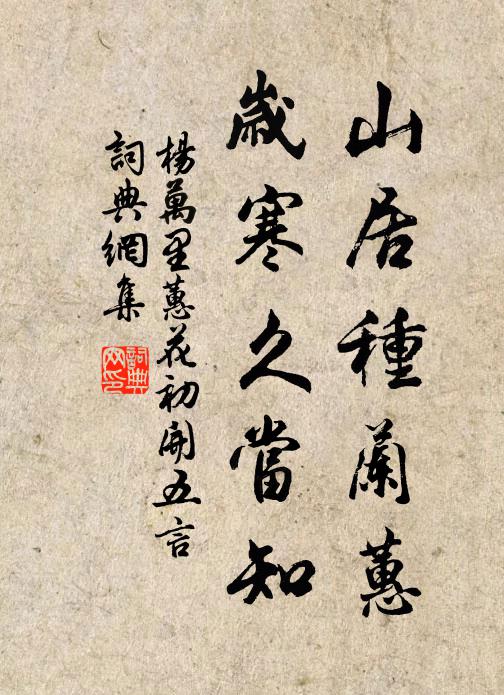 山居種蘭蕙
歲寒久當知
楊萬里蕙花初開五言
詞典網集
詞典
网印